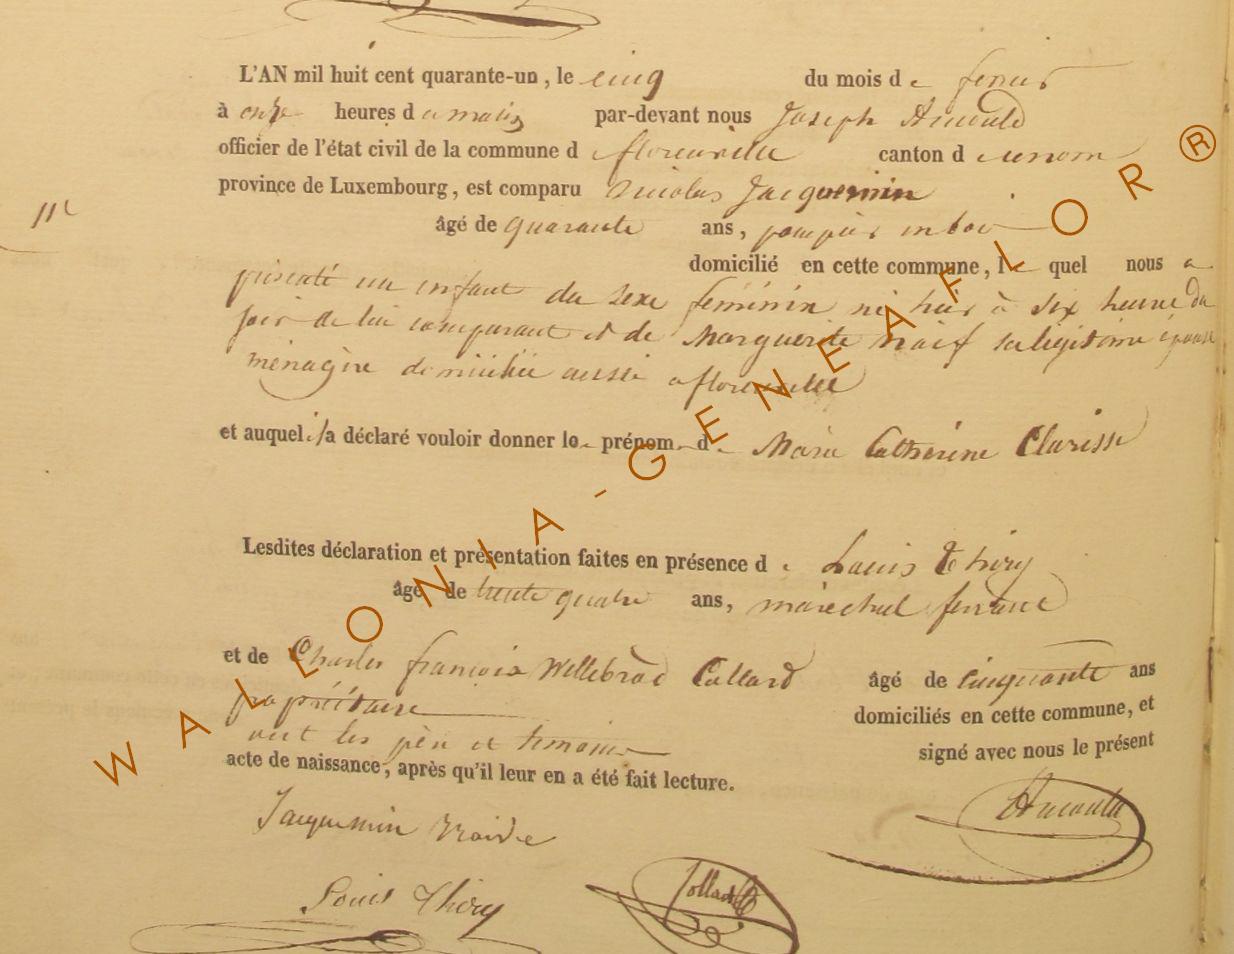 L'AN mil huit cent quarante-un, le cinq du mois de fevrier
à onze heures du matin par-devant nous Joseph Arnould
officier de l'état civil de la commune de florenville canton de
province de Luxembourg, est comparu Nicolas Jacquemin
11e
âgé de quarante ans,
domicilié en cette commune, lequel nous a
présenté un enfant du sexe féminin né hier à six heure du
soir de lui comparant et de Marguerite sa légitime épouse
ménagère domiciliée aussi a florenville
et auquel il a déclaré vouloir donner le prénom de Marie Catherine Clarisse
Lesdites déclaration et présentation faites en présence de Louis Thiry
âgé de trente quatre ans, maréchal ferrant
et de Charles françois Willebrod Collard âgé de cinquante ans
propriétaire domiciliés en cette commune, et
ont les père et temoins signé avec nous le présent
acte de naissance, après qu'il leur en a été fait lecture.
Jacquemin
Arnould
Louis Thiry
Collard
WALLONIA-GENEAFLOR®